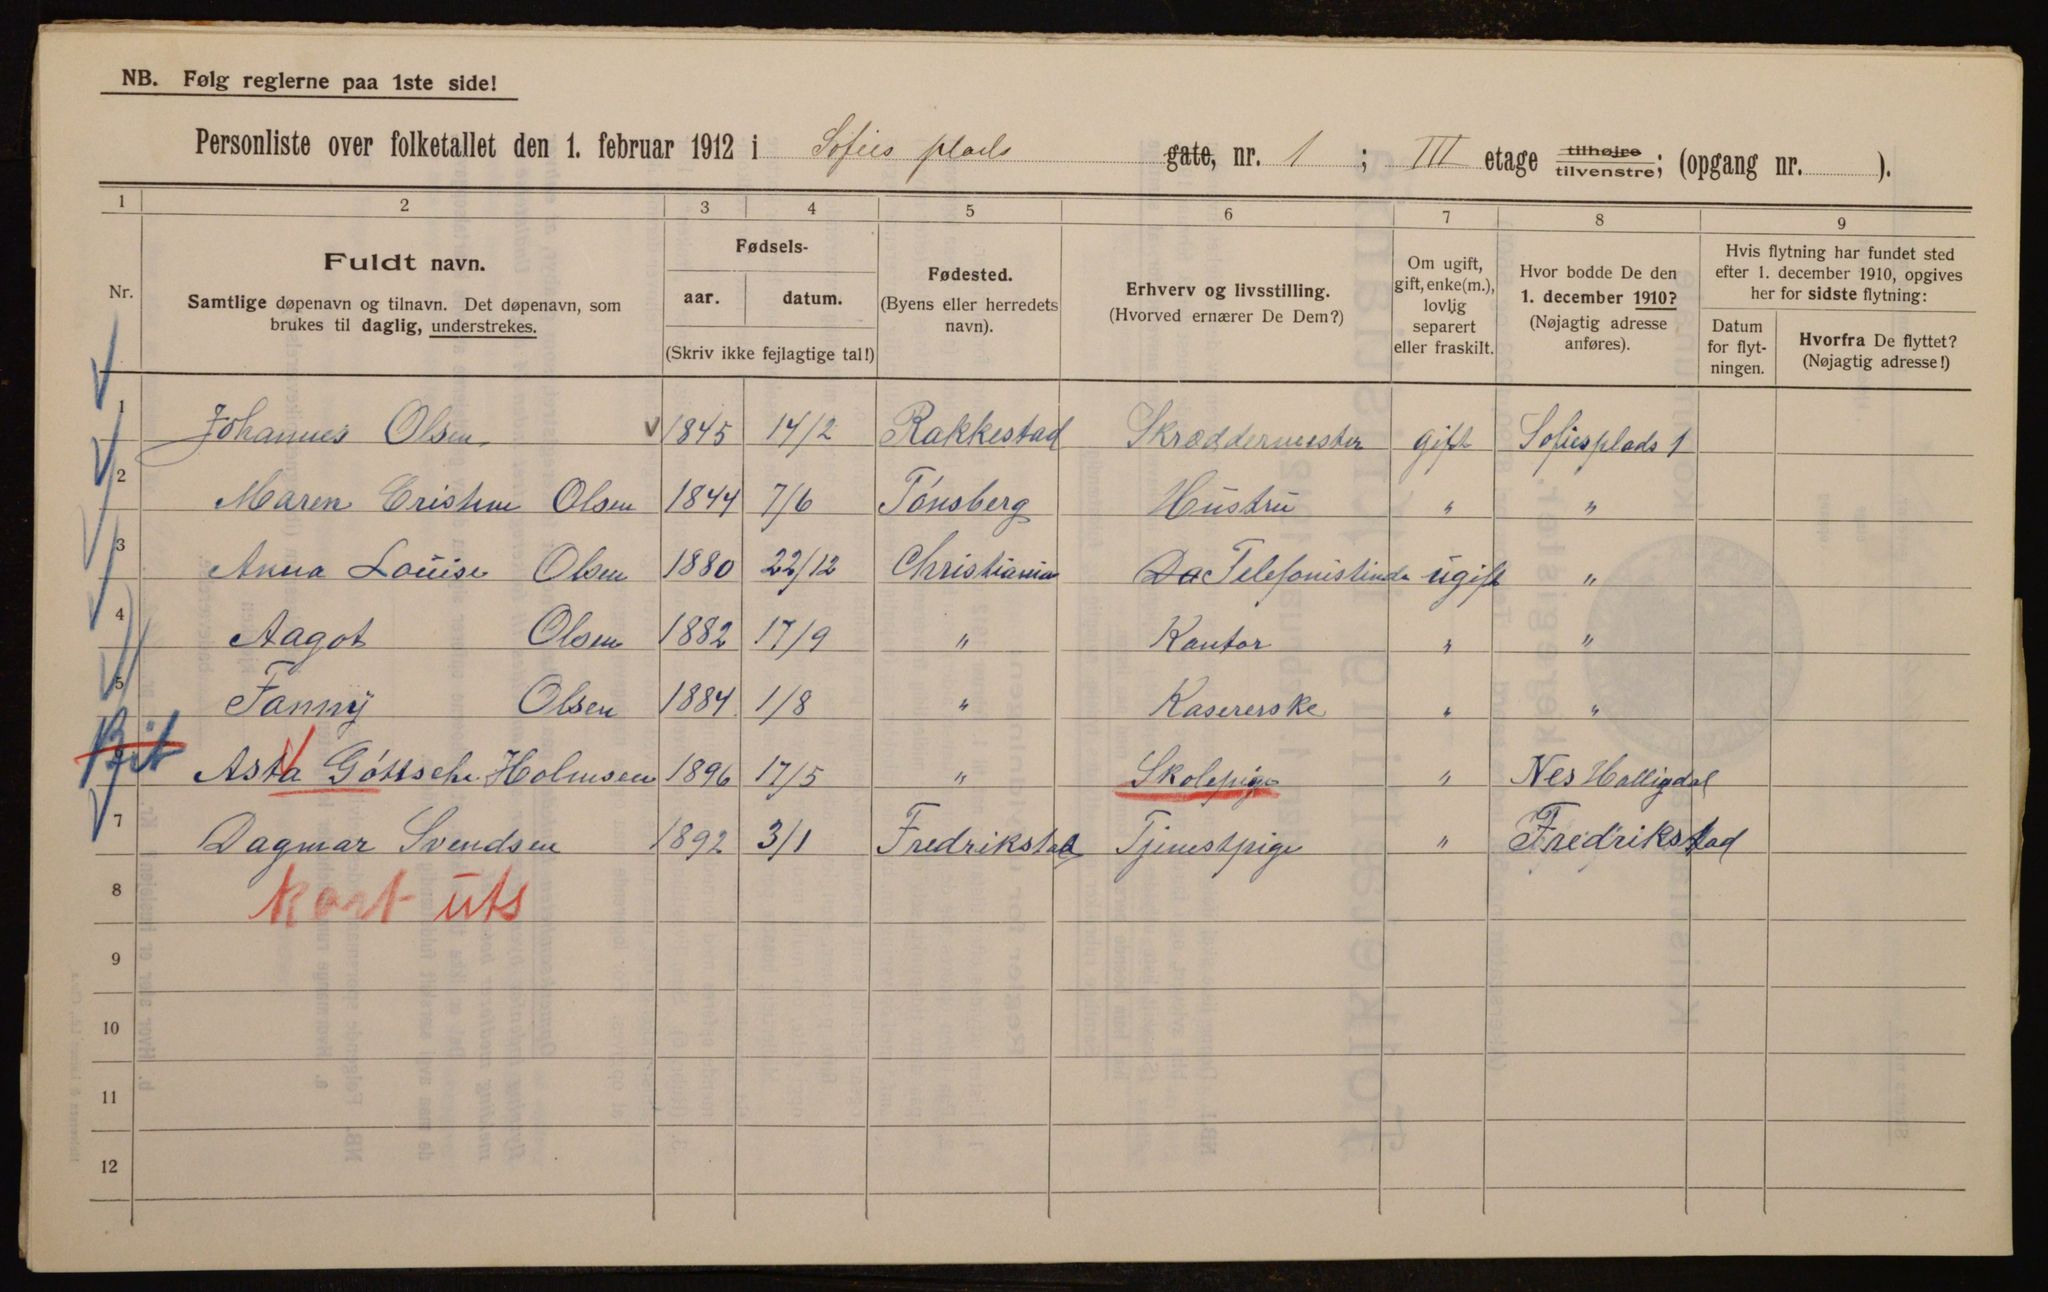 NB. Følg reglerne paa 1ste side!
Personliste over folketallet den 1. februar 1912 i Sofies plads gate, nr. 1 ; III etage tilhøjre tilvenstre; (opgang nr. ).
1 2 3 4 5 6 7 8 9
Nr.
Fuldt navn.
Samtlige døpenavn og tilnavn. Det døpenavn, som
brukes til daglig, understrekes.
Fødsels-
aar. datum.
(Skriv ikke fejlagtige tal!)
Fødested.
(Byens eller herredets
navn).
Erhverv og livsstilling.
(Hvorved ernærer De Dem?)
Om ugift,
gift, enke(m.),
lovlig
separert
eller fraskilt.
Hvor bodde De den
1. december 1910?
(Nøjagtig adresse
anføres).
Hvis flytning har fundet sted
efter 1. december 1910, opgives
her for sidste flytning:
Datum
for flyt-
ningen.
Hvorfra De flyttet?
(Nøjagtig adresse!)
1 Johannes Olsen 1845 14/2 Rakkestad Skræddermester gift Sofiesplads 1
2 Maren Cristine Olsen 1844 7/6 Tønsberg Hustru " "
3 Anna Louise Olsen 1880 22/12 Christiania Da Telefonistinde ugift "
4 Aagot Olsen 1882 17/9 " Kontor " "
5 Fanny Olsen 1884 1/8 " Kasererske " "
6 Asta Gøttsche Holmsen 1896 17/5 " Skolepige " Nes Halligdal
7 Dagmar Svendsen 1892 3/1 Fredrikstad Tjenestpige " Fredrikstad
8 kort uts
9
10
11
12